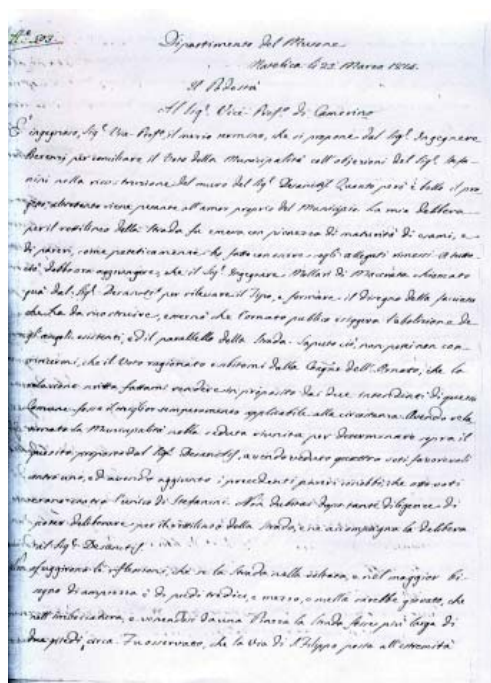 N.° 503
Dipartimento del Musone
Matelica li 23 Marzo 1814
Il Podestà
Al Sig.r Vice-Pref.o di Camerino
E' ingegnoso, Sig.r Vice-Pref.o, il mezzo termine, che si propone dal Sig.r Ingegnere
per conciliare il Voto della Municipalità coll'obiezioni del Sig.r Stefa-
nini nella ricostruzione del muro del Sig.r Desanctis. Quanto però è bello il pro-
getto, altrettanto viene pesante all'amor proprio del Municipio. La mia delibera
per il rettilineo della Strada fu emessa con pienezza di maturità di esami, e
di pareri, come ho fatto conoscere negli allegati rimessi. A tutto
ciò, debbo ora aggiungere, che il Sig.r Ingegnere Mollari di Macerata chiamato
quà dal Sig.r Desanctis per rilevare il Tipo, e formare il disegno della facciata
che ha da ricostruire, esternò che l'ornato publico esiggeva l'abolizione de-
gl'angoli esistenti, ed il parallelo della Strada. Saputo ciò, non potei non con-
vincermi, che il Voto ragionato esibitomi dalla Comm.e dell'Ornato, che la
relazione scritta fattami rendere in proposito dai due intendenti di questa
Comune fosse il miglior temperamento applicabile alla circostanza. Avendo rela-
zionato la Municipalità nella seduta riunita per determinare sopra il
quesito proposto dal Sig.r Desanctis, avendo veduto quattro voti favorevoli
contro uno, ed avendo aggiunto i precedenti pareri conobbi, che otto voti
erano contro l'unico di Stefanini. Non dubitai dopo tante diligenze di
poter deliberare per il rettilineo della Strada, e ne accompagnai la delibera
al Sig.r Desanctis.
Non sfuggirono le riflessioni, che se la Strada nella voltata, e nel maggior bi-
sogno di ampiezza è di piedi tredici, e mezzo, e nulla sarebbe giovato, che
nell'imboccatura, e venendosi da una Piazza la Strada fosse più larga di
due piedi, circa. Fu osservato, che la Via di S. Filippo posta all'estremità